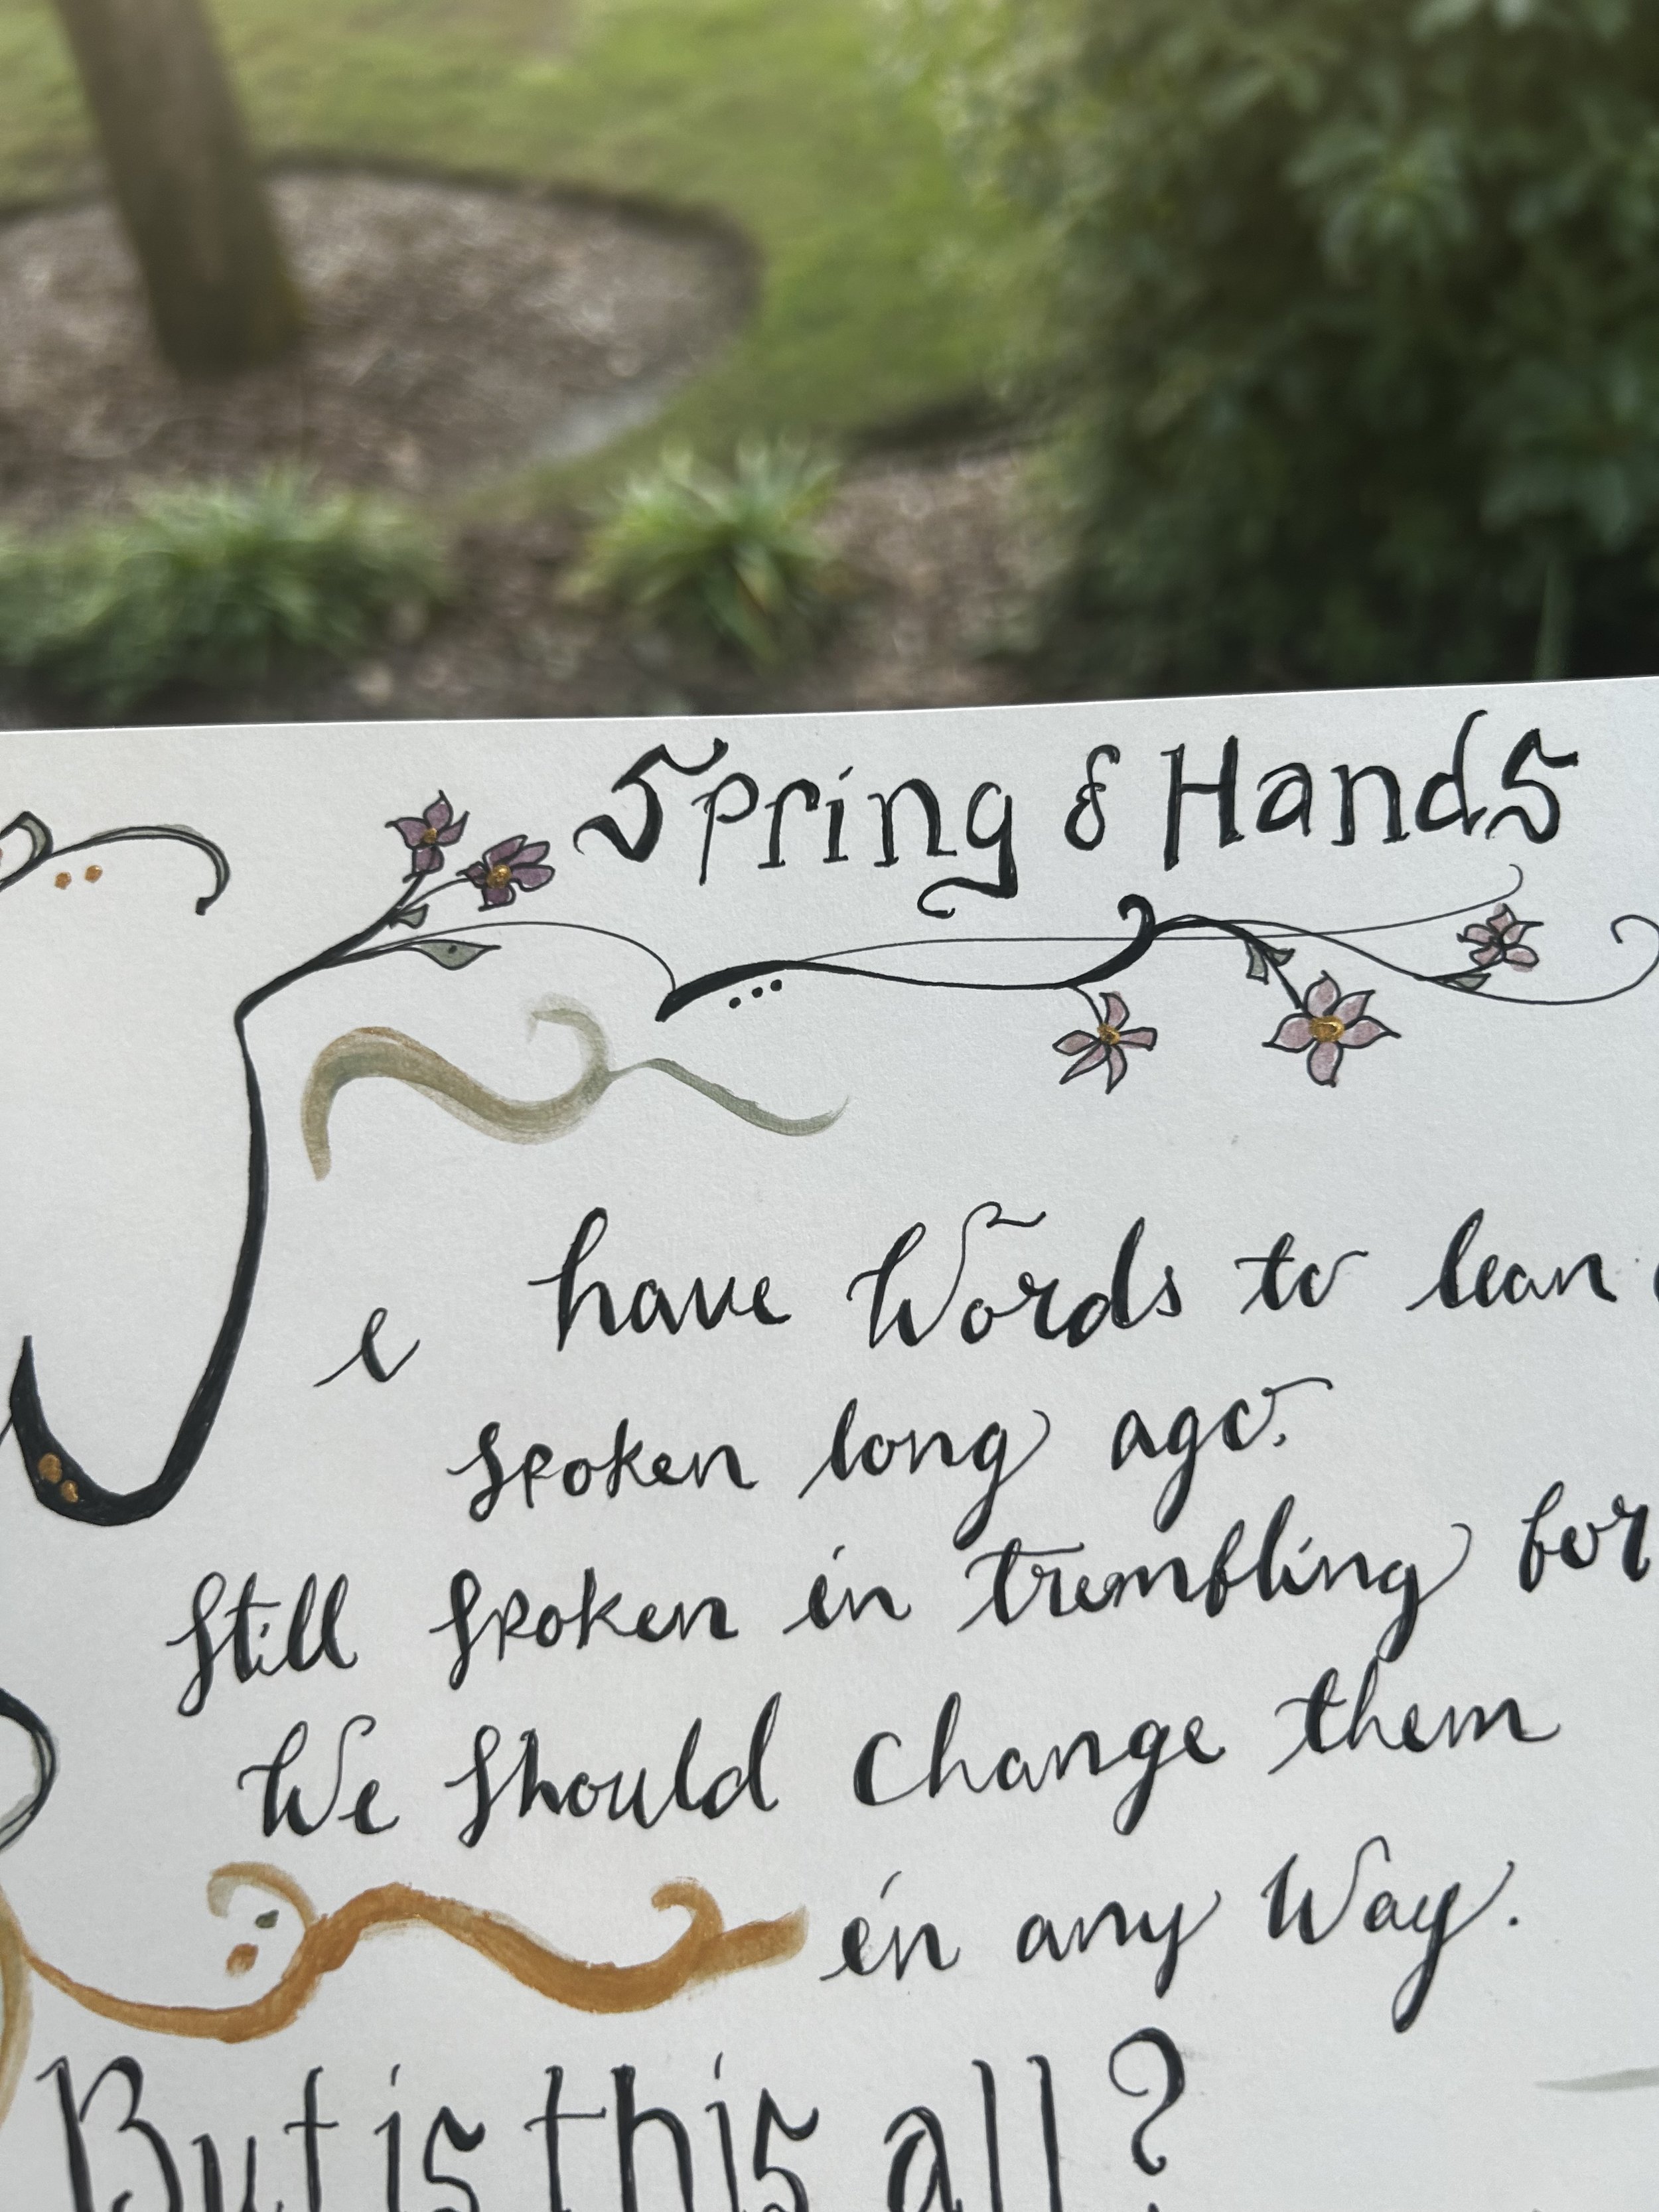 Spring & Hands
We have Words to lean
spoken long ago.
Still spoken in trembling for
We should change them
in any Way.
But is this all?